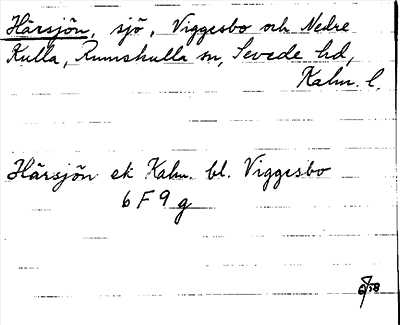 Härsjön, sjö, Viggesbo och Nedre
Kulla, Rumskulla sn, Sevede hd,
Kalm. l.
Härsjön ek Kalm. bl. Viggesbo
6 F 9 g